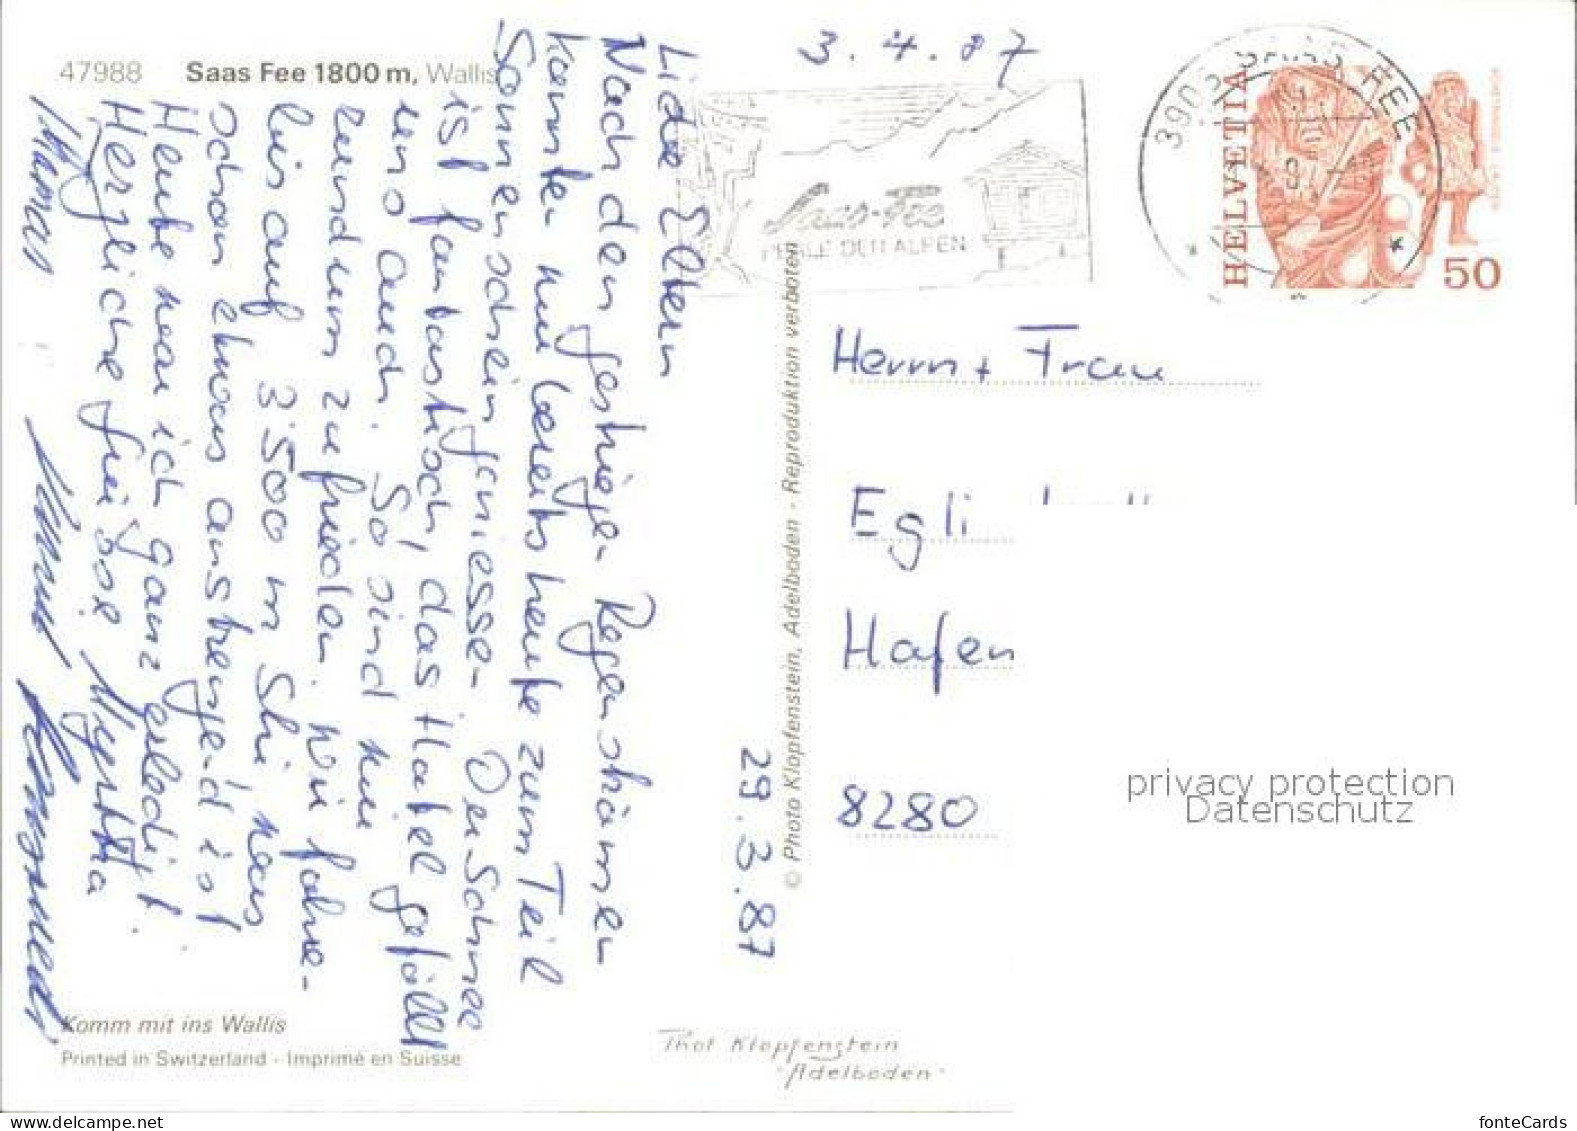 47988 Saas Fee 1800 m, Wallis
3.4.87
3906 SAAS-FEE
Saas-Fee
PERLE DER ALPEN
HELVETIA
50
29.3.87
Liebe Eltern
Nach den gestrigen Regenströmen
konnten wir bereits heute zum Teil
Sonnenschein geniessen. Der Schnee
ist fantastisch, das Hotel gefällt
uns auch. So sind wir
rundum zufrieden. Wir fahren
bis auf 3'500 m Ski, was
schon etwas anstrengend ist.
Heute war ich ganz erledigt.
Herzliche Grüsse Myrtha
Herrn + Frau
Egli
Hafen
8280
© Photo Klopfenstein, Adelboden - Reproduktion verboten
privacy protection
Datenschutz
Komm mit ins Wallis
Printed in Switzerland - Imprimé en Suisse
Phot Klopfenstein
Adelboden
www.delcampe.net
fonteCards